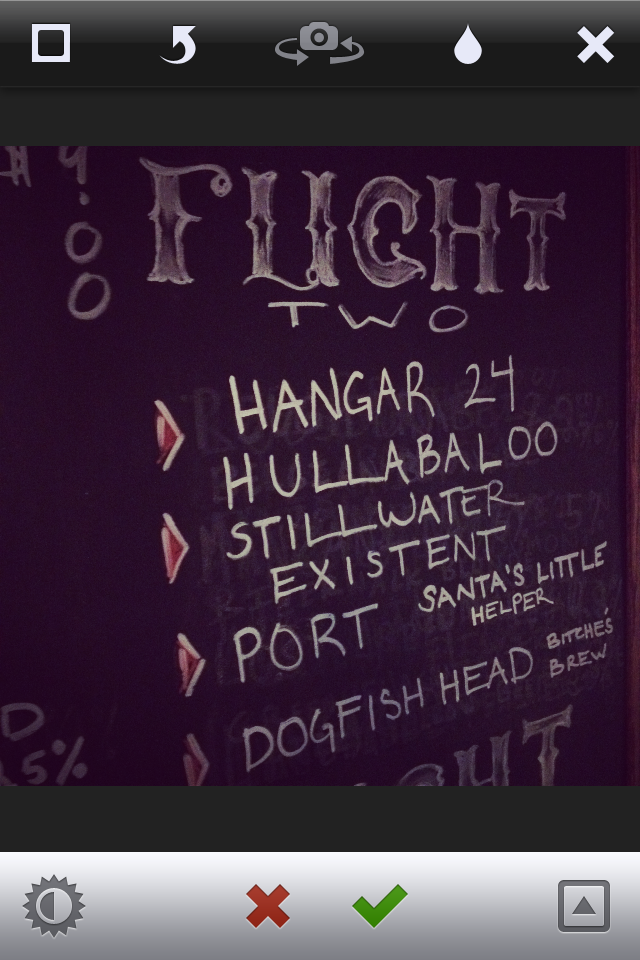 FLIGHT
TWO
HANGAR 24
HULLABALOO
STILLWATER
EXISTENT
PORT SANTA'S LITTLE
HELPER
DOGFISH HEAD BITCHES
BREW
5%